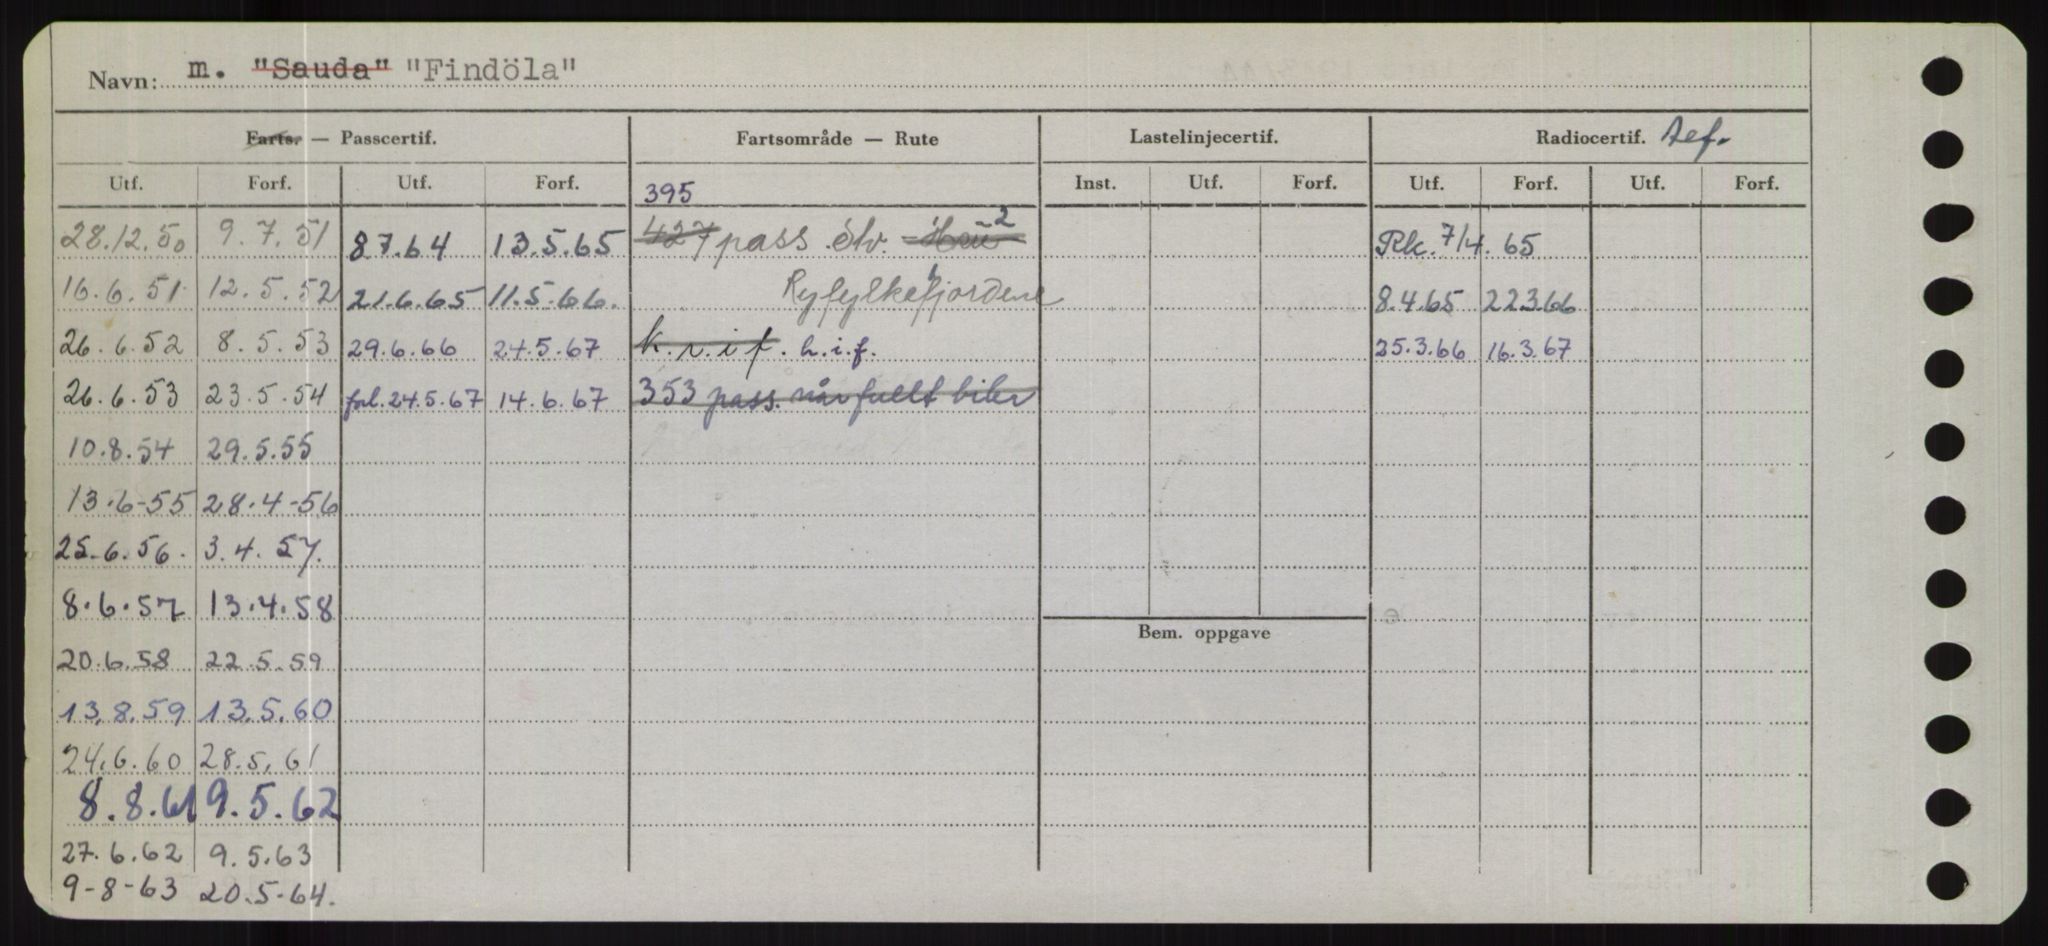 Navn: m. "Sauda" "Findöla"
Farts. — Passcertif. Fartsområde — Rute Lastelinjecertif. Radiocertif. Tef.
Utf. Forf. Utf. Forf. 395 Inst. Utf. Forf. Utf. Forf. Utf. Forf.
28.12.50 9.7.51 8 7.64 13.5.65 427 pass Rk. 7/4. 65
16.6.51 12.5.52 21.6.65 11.5.66. Ryfylkefjordene 8.4.65 22.3.66
26.6.52 8.5.53 29.6.66 24.5.67 k.v.i.f. h.i.f. 25.3.66 16.3.67
26.6.53 23.5.54 forl. 24.5.67 14.6.67 353 pass. når fullt biler
10.8.54 29.5.55
13.6-55 28.4-56
25.6.56. 3.4.57.
8.6.57 13.4.58
Bem. oppgave
20.6.58 22.5.59
13.8.59 13.5.60
24.6.60 28.5.61
8.8.61 9.5.62
27.6.62 9.5.63
9-8-63 20.5-64.